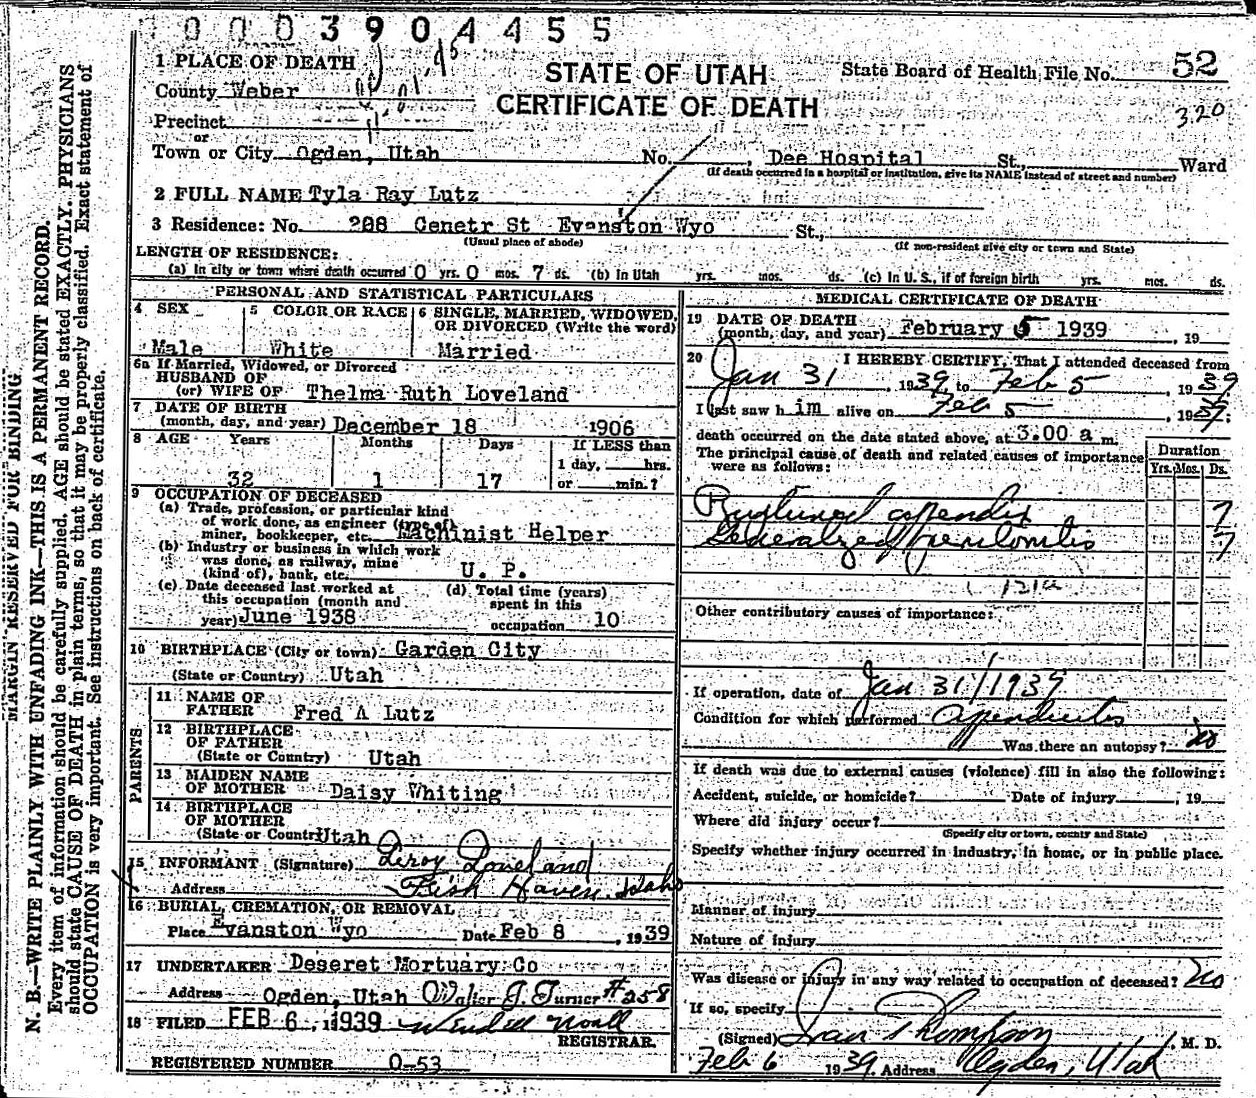 0003904455
1 PLACE OF DEATH
STATE OF UTAH
State Board of Health File No. 52
County Weber
CERTIFICATE OF DEATH
320
Precinct
or
Town or City Ogden, Utah No. , Dee Hospital St., Ward
(If death occurred in a hospital or institution, give its NAME instead of street and number)
2 FULL NAME Tyla Ray Lutz
3 Residence: No. 208 Cenetr St Evanston Wyo St.,
(Usual place of abode) (If non-resident give city or town and State)
LENGTH OF RESIDENCE:
(a) In city or town where death occurred 0 yrs. 0 mos. 7 ds. (b) In Utah yrs. mos. ds. (c) In U. S., if of foreign birth yrs. mos. ds.
PERSONAL AND STATISTICAL PARTICULARS
4 SEX 5 COLOR OR RACE 6 SINGLE, MARRIED, WIDOWED,
OR DIVORCED (Write the word)
Male White Married
6a If Married, Widowed, or Divorced
HUSBAND OF
(or) WIFE OF Thelma Ruth Loveland
7 DATE OF BIRTH
(month, day, and year) December 18 1906
8 AGE Years Months Days If LESS than
1 day, hrs.
32 1 17 or min.?
9 OCCUPATION OF DECEASED
(a) Trade, profession, or particular kind
of work done, as engineer (type of)
miner, bookkeeper, etc. Machinist Helper
(b) Industry or business in which work
was done, as railway, mine
(kind of), bank, etc. U. P.
(c) Date deceased last worked at (d) Total time (years)
this occupation (month and spent in this
year) June 1938 occupation 10
10 BIRTHPLACE (City or town) Garden City
(State or Country) Utah
PARENTS
11 NAME OF
FATHER Fred A Lutz
12 BIRTHPLACE
OF FATHER
(State or Country) Utah
13 MAIDEN NAME
OF MOTHER Daisy Whiting
14 BIRTHPLACE
OF MOTHER
(State or Country) Utah
15 INFORMANT (Signature) Leroy Loveland
Address Fish Haven, Idaho
16 BURIAL, CREMATION, OR REMOVAL
Place Evanston Wyo Date Feb 8 , 1939
17 UNDERTAKER Deseret Mortuary Co
Address Ogden, Utah Walter J. Turner #258
18 FILED FEB 6, 1939 Wendell Noall
REGISTRAR.
REGISTERED NUMBER 0-53
MEDICAL CERTIFICATE OF DEATH
19 DATE OF DEATH
(month, day, and year) February 5 1939 , 19
20 I HEREBY CERTIFY, That I attended deceased from
Jan 31 , 1939, to Feb 5 , 1939
I last saw him alive on Feb 5 , 19
death occurred on the date stated above, at 3.00 a m.
The principal cause of death and related causes of importance
were as follows:
Duration
Yrs. Mos. Ds.
Ruptured apendix 7
Generalized peritonitis 7
121a
Other contributory causes of importance:
If operation, date of Jan 31/1939
Condition for which performed Apendicitis
Was there an autopsy? no
If death was due to external causes (violence) fill in also the following:
Accident, suicide, or homicide? Date of injury , 19
Where did injury occur?
(Specify city or town, county and State)
Specify whether injury occurred in industry, in home, or in public place.
Manner of injury
Nature of injury
Was disease or injury in any way related to occupation of deceased? no
If so, specify
(Signed) Ivan Thompson , M. D.
Feb 6 1939. Address Ogden, Utah
MARGIN RESERVED FOR BINDING
N. B.—WRITE PLAINLY WITH UNFADING INK—THIS IS A PERMANENT RECORD.
Every item of information should be carefully supplied. AGE should be stated EXACTLY. PHYSICIANS
should state CAUSE OF DEATH in plain terms, so that it may be properly classified. Exact statement of
OCCUPATION is very important. See instructions on back of certificate.